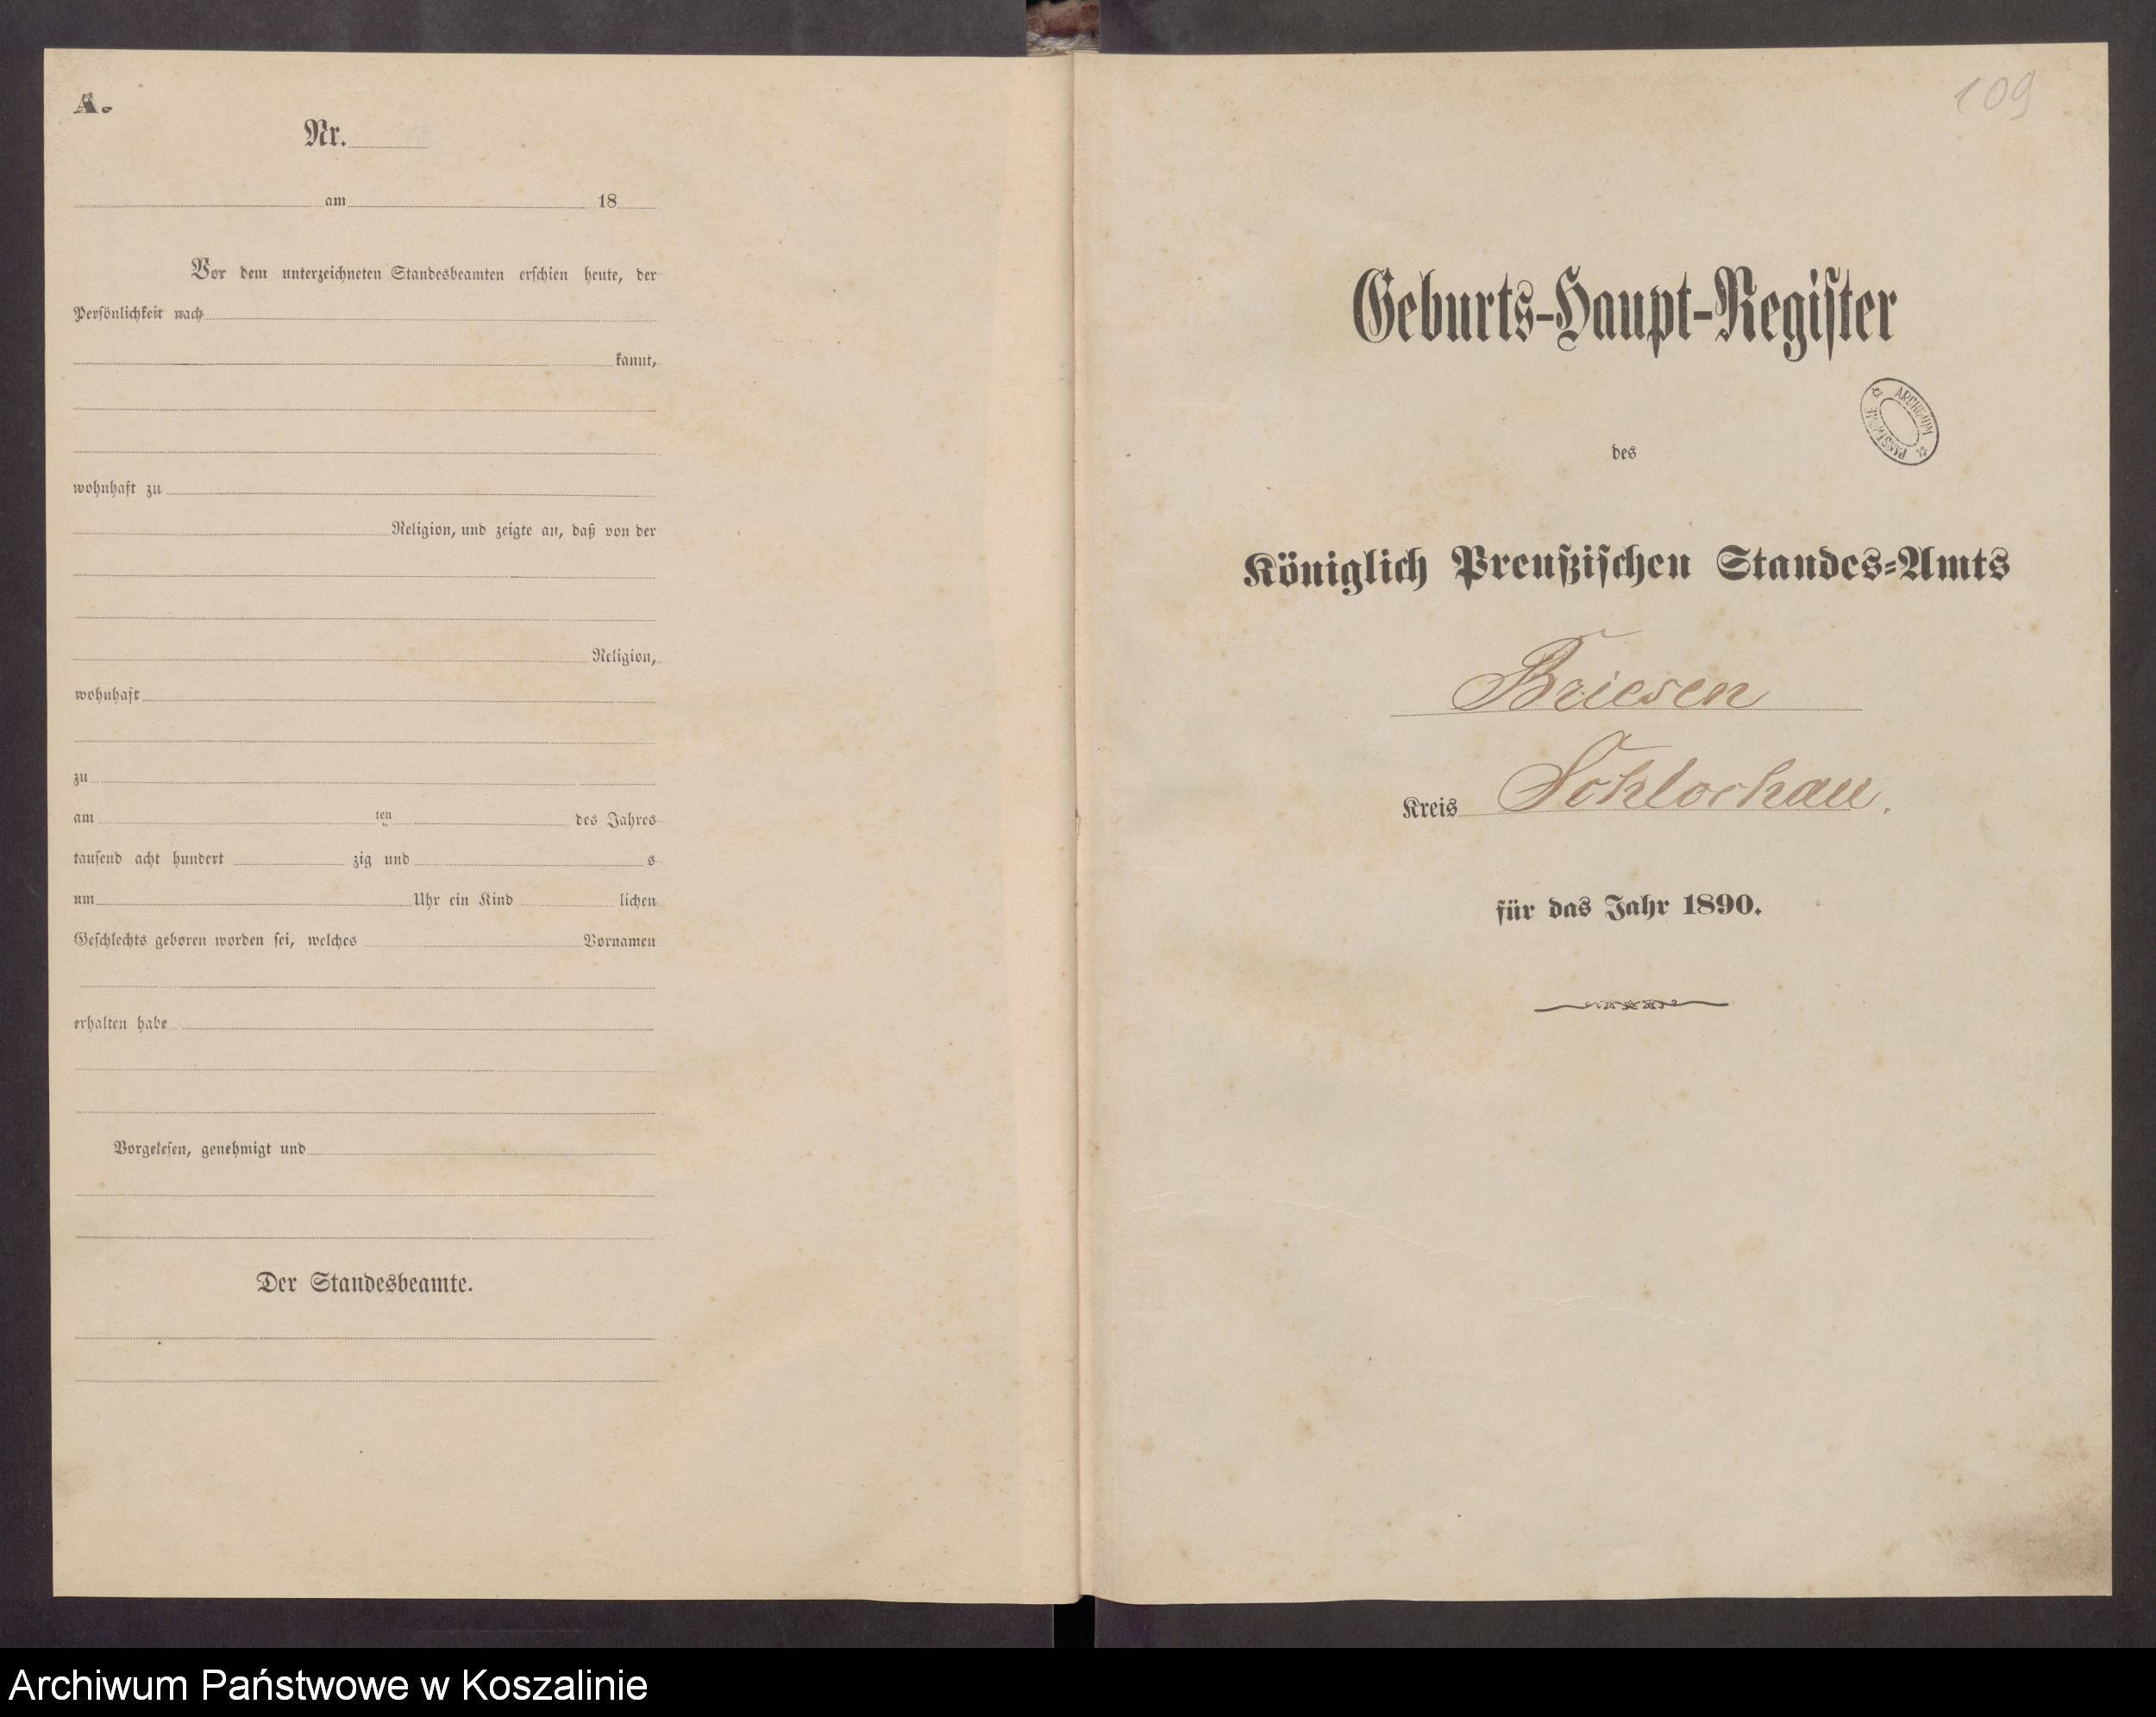 A.
Nr.
am 18
Vor dem unterzeichneten Standesbeamten erschien heute, der
Persönlichkeit nach
kannt,
wohnhaft zu
Religion, und zeigte an, daß von der
Religion,
wohnhaft
zu
am ten des Jahres
tausend acht hundert zig und s
um Uhr ein Kind lichen
Geschlechts geboren worden sei, welches Vornamen
erhalten habe
Vorgelesen, genehmigt und
Der Standesbeamte.
109
Geburts-Haupt-Register
ARCHIWUM PAŃSTWOWE
des
Königlich Preußischen Standes-Amts
Briesen
Kreis Schlochau.
für das Jahr 1890.
Archiwum Państwowe w Koszalinie